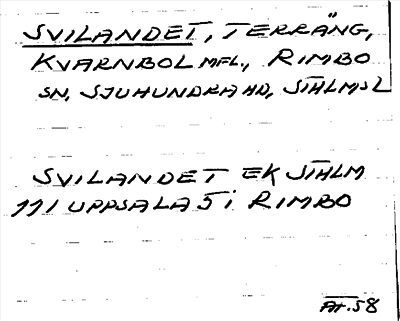 SVILANDET, TERRÄNG,
KVARNBOL MFL., RIMBO
SN, SJUHUNDRA HD, STHLMSL
SVILANDET EK STHLM
111 UPPSALA 5 i RIMBO
AT.58